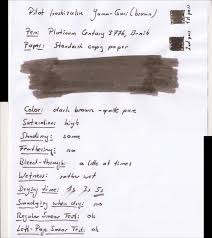 Pilot Iroshizuku Yama-Guri (brown)
Pen: Platinum Century 3776, B-nib
Paper: Standard copy paper
1st pass
2nd pass
Color: dark brown - quite pure
Saturation: high
Shading: some
Feathering: no
Bleed-through: a little at times
Wetness: rather wet
Drying time: 1s 3s 5s
Smudging when dry: no
Regular Smear Test: ok
Left-Page Smear Test: ok